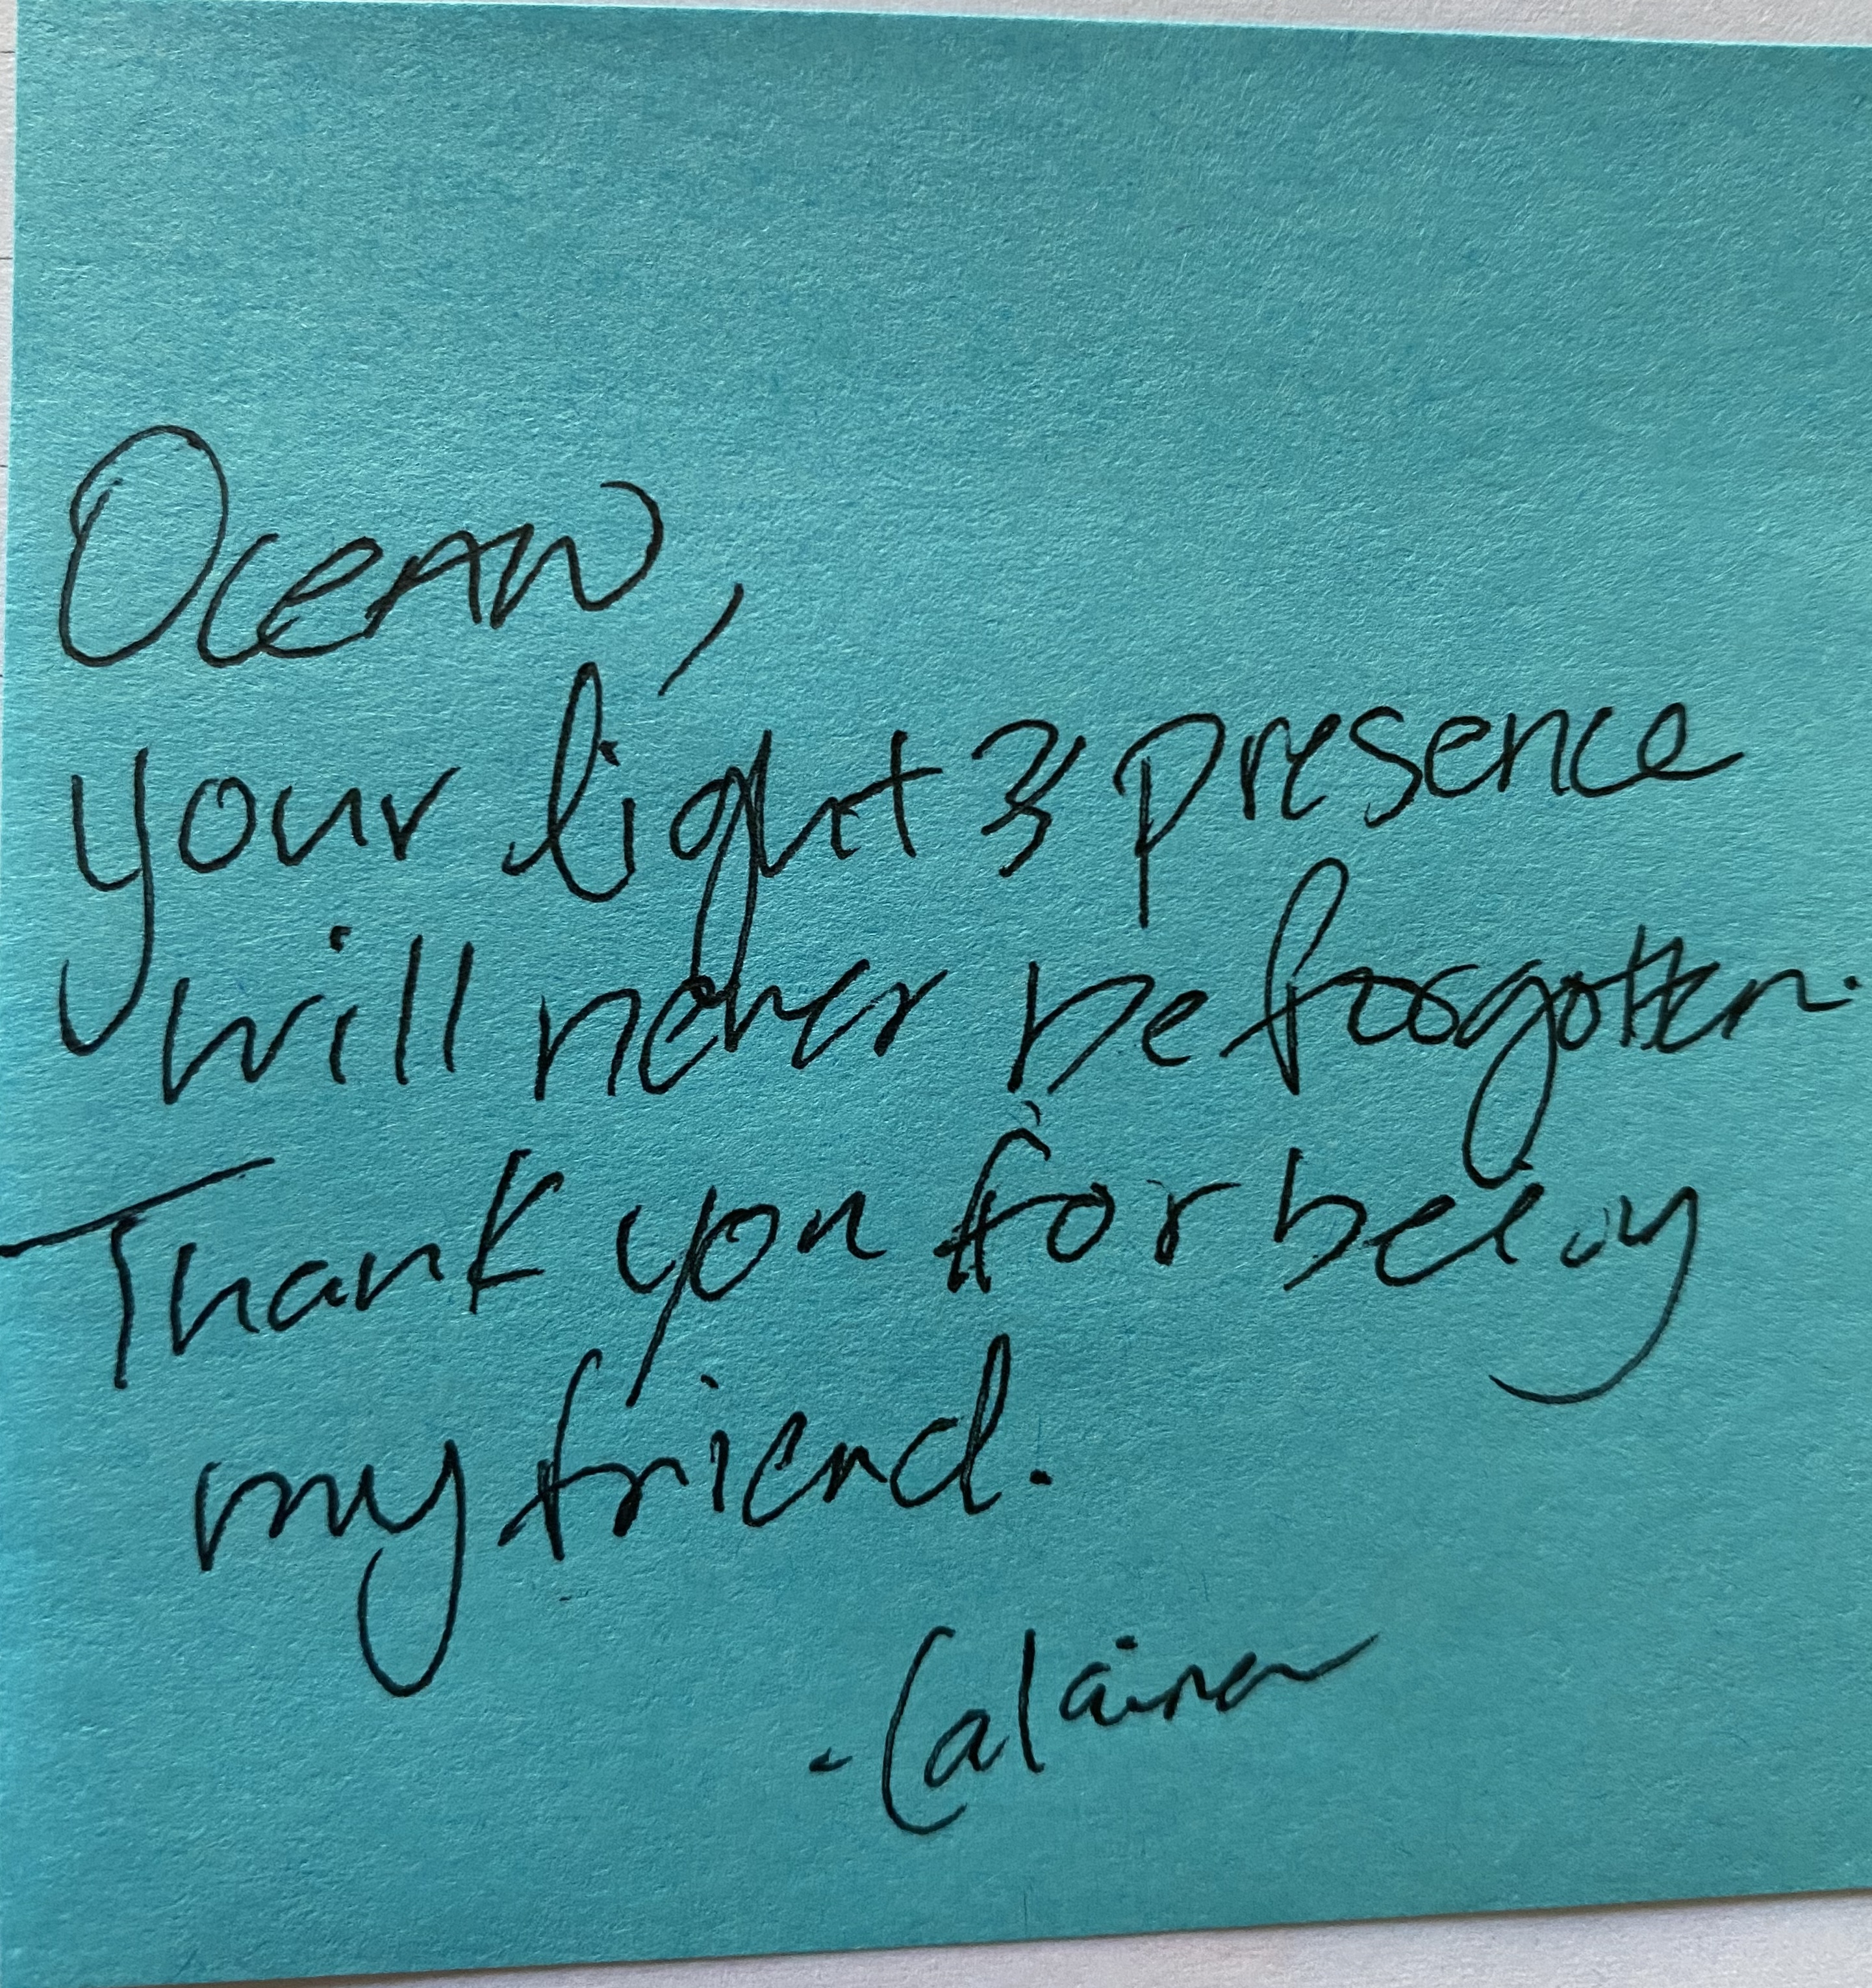 Ocean,
your light & presence
will never be forgotten.
Thank you for being
my friend.
-Calaina